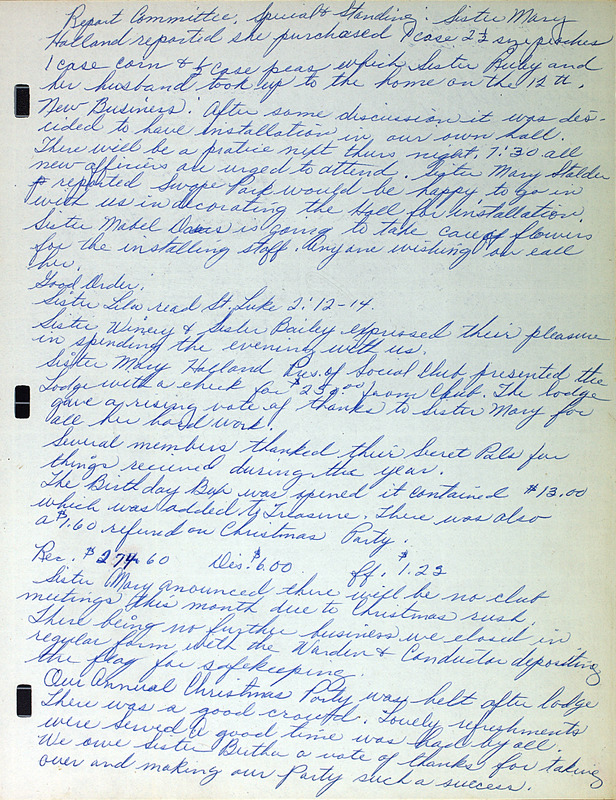 Report Committee, Special & Standing: Sister Mary
Halland reported she purchased 1 case 2½ size peaches
1 case corn & ½ case peas which Sister Bailey and
her husband took up to the home on the 12th.
New Business: After some discussion it was des-
cided to have Installation in our own hall.
There will be a pratice next thurs night, 7:30 all
new officers are urged to attend. Sister Mary Stalder
reported Swope Park would be happy to go in
with us in decorating the Hall for installation.
Sister Mabel Davis is going to take care of flowers
for the installing staff. Anyone wishing on call
her.
Good Order:
Sister Lila read St. Luke 2:12-14
Sister Winery & Sister Bailey expressed their pleasure
in spending the evening with us.
Sister Mary Hagland Pres. of Social Club presented the
Lodge with a check for from Club. The lodge
gave a rising vote of thanks to Sister Mary for
all her hard work.
Several members thanked their Secret Pals for
things received during the year.
The Birthday Box was opened it contained #13.00
which was added to Treasure. There was also
a $1.60 refund on Christmas Party.
Rec. $274.60 Dis. $6.00 ff. $1.23
Sister Mary anounced there will be no club
meetings this month due to Christmas rush.
There being no further business we closed in
regular form with the Warden & Conductor depositing
the flag for safekeeping.
Our Annual Christmas Party was helt after lodge
There was a good crowd. Lovely refreshments
were served a good time was had by all.
We owe Sister Bertha a vote of thanks for taking
over and making our Party such a success.